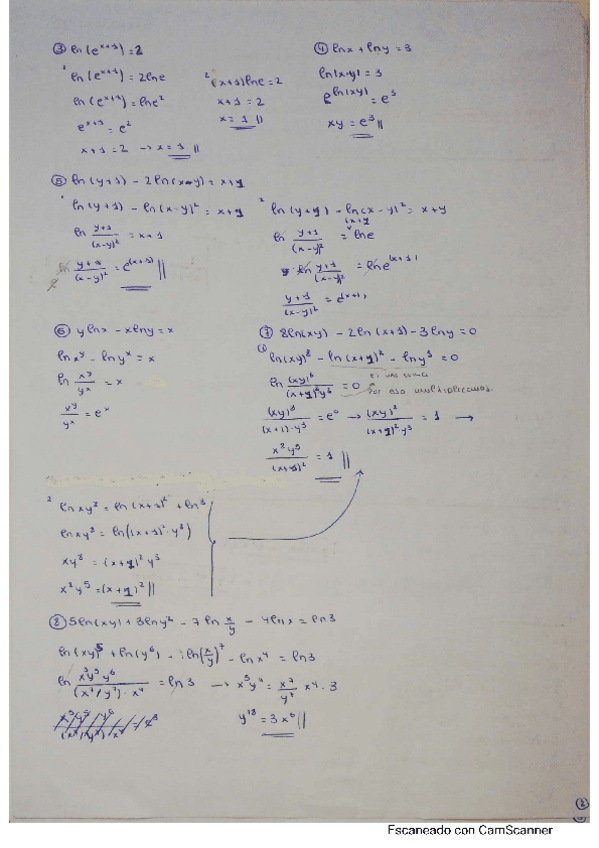 ③ ln(e^(x+1)) = 2
¹ ln(e^(x+1)) = 2lne
ln(e^(x+1)) = lne²
e^(x+1) = e²
x+1 = 2 → x = 1 ||
² (x+1)lne = 2
x+1 = 2
x = 1 ||
④ lnx + lny = 3
ln(x·y) = 3
e^(ln(xy)) = e³
xy = e³ ||
⑤ ln(y+1) - 2ln(x-y) = x+y
¹ ln(y+1) - ln(x-y)² = x+y
ln (y+1)/(x-y)² = x+1
(y+1)/(x-y)² = e^(x+1) ||
² ln(y+y) - ln(x-y)² = x+y
ln (y+1)/(x-y)² = lne
ln (y+1)/(x-y)² = lne^(x+1)
(y+1)/(x-y)² = e^(x+1)
⑥ ylnx - xlny = x
lnx^y - lny^x = x
ln x^y/y^x = x
x^y/y^x = e^x
⑦ 8ln(xy) - 2ln(x+1) - 3lny = 0
① ln(xy)⁸ - ln(x+1)² - lny³ = 0
ln (xy)⁸/((x+1)²y³) = 0
por eso multiplicamos
(xy)⁸/((x+1)·y³) = e⁰ → (xy)⁸/((x+1)²y³) = 1 →
x⁸y⁵/(x+1)² = 1 ||
² lnxy⁸ = ln(x+1)² + ln³
lnxy⁸ = ln((x+1)²·y³)
xy⁸ = (x+1)²y³
x⁸y⁵ = (x+1)² ||
⑧ 5ln(xy) + 3lny² - 7ln x/y - 4lnx = ln3
ln(xy)⁵ + ln(y⁶) - ln(x/y)⁷ - lnx⁴ = ln3
ln x⁵y⁵y⁶/((x⁷/y⁷)·x⁴) = ln3 → x⁵y¹¹ = x⁷/y⁷ x⁴·3
y¹⁸ = 3x⁶ ||
Escaneado con CamScanner